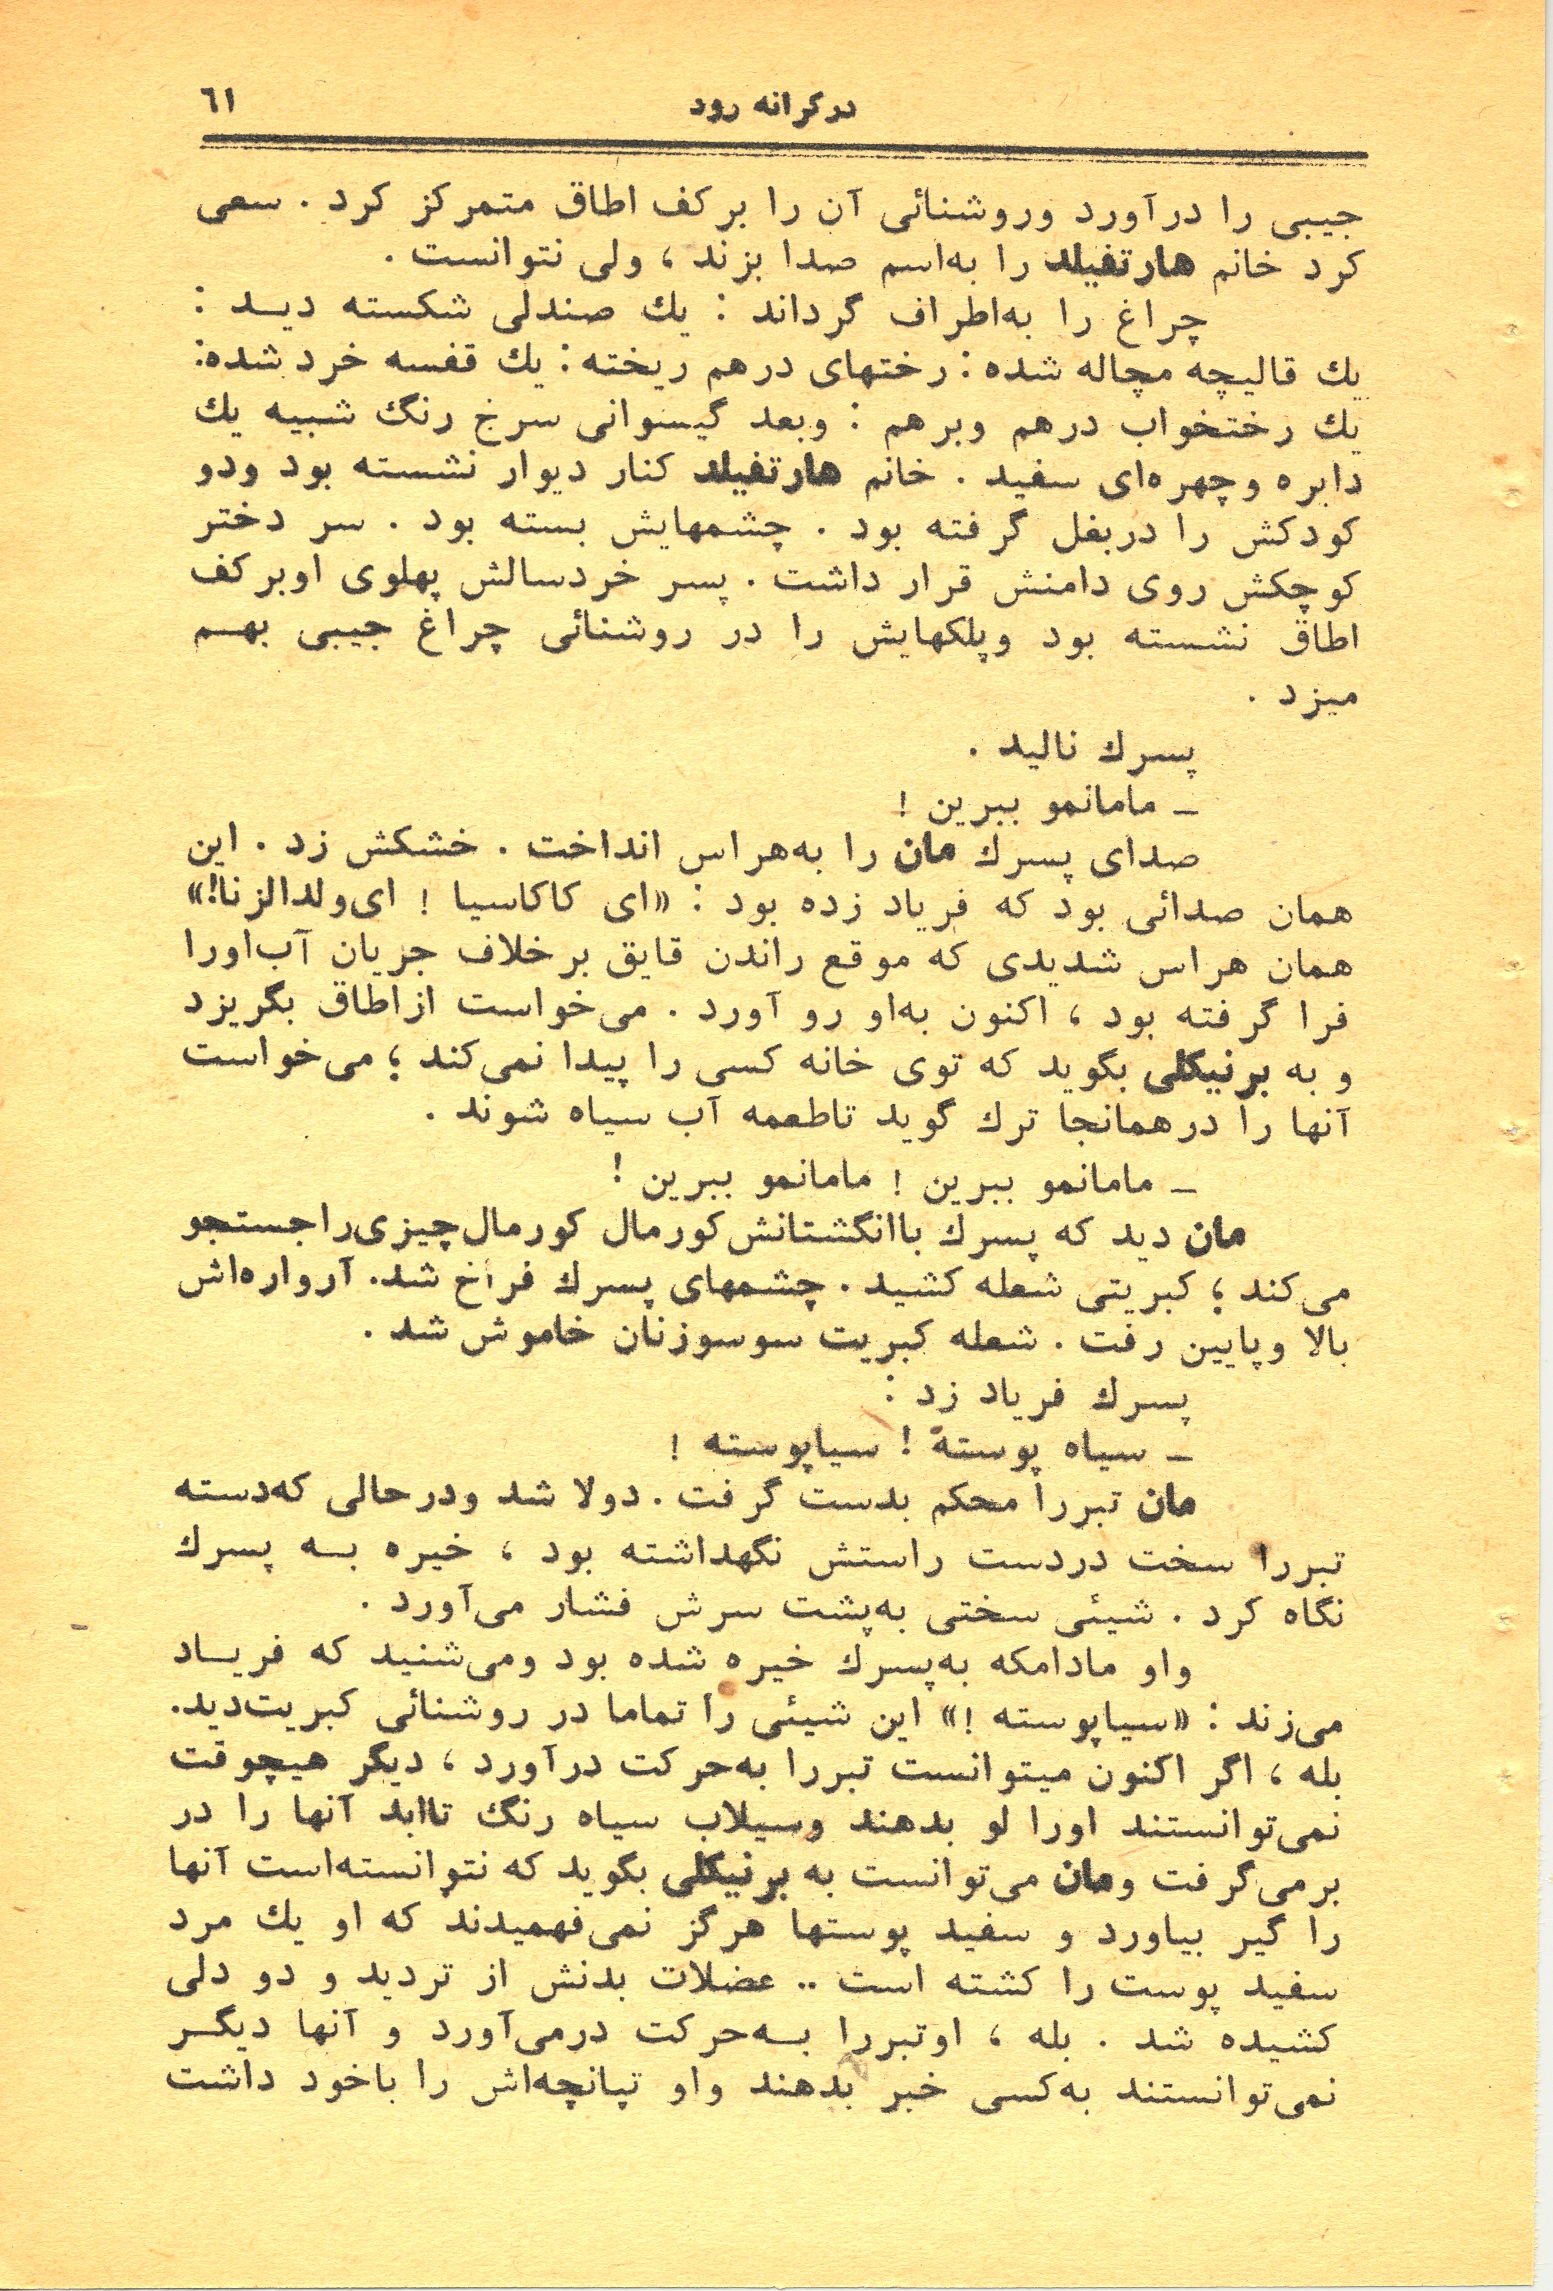 در کرانه رود
٦١
جیبی را درآورد وروشنائی آن را برکف اطاق متمرکز کرد . سعی
کرد خانم هارتفیلد را به‌اسم صدا بزند ، ولی نتوانست .
چراغ را به‌اطراف گرداند : یك صندلی شکسته دیـد :
یك قالیچه مچاله شده : رختهای درهم ریخته : یك قفسه خرد شده:
یك رختخواب درهم وبرهم : وبعد گیسوانی سرخ رنگ شبیه یك
دایره وچهره‌ای سفید . خانم هارتفیلد کنار دیوار نشسته بود ودو
کودکش را دربغل گرفته بود . چشمهایش بسته بود . سر دختر
کوچکش روی دامنش قرار داشت . پسر خردسالش پهلوی اوبرکف
اطاق نشسته بود وپلکهایش را در روشنائی چراغ جیبی بهـم
میزد .
پسرك نالید .
ـ مامانمو ببرین !
صدای پسرك مان را به‌هراس انداخت . خشکش زد . این
همان صدائی بود که فریاد زده بود : «ای کاکاسیا ! ای‌ولدالزنا!»
همان هراس شدیدی که موقع راندن قایق برخلاف جریان آب‌اورا
فرا گرفته بود ، اکنون به‌او رو آورد . می‌خواست ازاطاق بگریزد
و به برنیکلی بگوید که توی خانه کسی را پیدا نمی‌کند ؛ می‌خواست
آنها را درهمانجا ترك گوید تاطعمه آب سیاه شوند .
ـ مامانمو ببرین ! مامانمو ببرین !
مان دید که پسرك باانگشتانش‌کورمال کورمال‌چیزی‌راجستجو
می‌کند ؛ کبریتی شعله کشید . چشمهای پسرك فراخ شد. آرواره‌اش
بالا وپایین رفت . شعله کبریت سوسوزنان خاموش شد .
پسرك فریاد زد :
ـ سیاه پوسته ! سیاپوسته !
مان تبررا محکم بدست گرفت . دولا شد ودرحالی که‌دسته
تبررا سخت دردست راستش نگهداشته بود ، خیره بـه پسرك
نگاه کرد . شیئی سختی به‌پشت سرش فشار می‌آورد .
واو مادامکه به‌پسرك خیره شده بود ومی‌شنید که فریـاد
می‌زند : «سیاپوسته !» این شیئی را تماما در روشنائی کبریت‌دید.
بله ، اگر اکنون میتوانست تبررا به‌حرکت درآورد ، دیگر هیچوقت
نمی‌توانستند اورا لو بدهند وسیلاب سیاه رنگ تاابد آنها را در
برمی‌گرفت ومان می‌توانست به برنیکلی بگوید که نتوانسته‌است آنها
را گیر بیاورد و سفید پوستها هرگز نمی‌فهمیدند که او یك مرد
سفید پوست را کشته است .. عضلات بدنش از تردید و دو دلی
کشیده شد . بله ، اوتبررا بـه‌حرکت درمی‌آورد و آنها دیگـر
نمی‌توانستند به‌کسی خبر بدهند واو تپانچه‌اش را باخود داشت